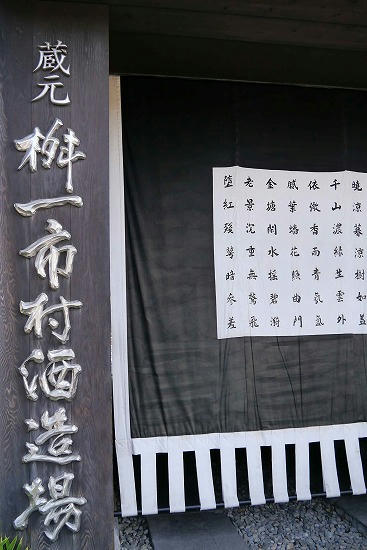 蔵元
桝一市村酒造場
曉涼暮涼樹如蓋
千山濃緑生雲外
依微香雨青氛氳
膩葉蟠花照曲門
金塘閑水揺碧漪
老景沉重無驚飛
堕紅残萼暗参差